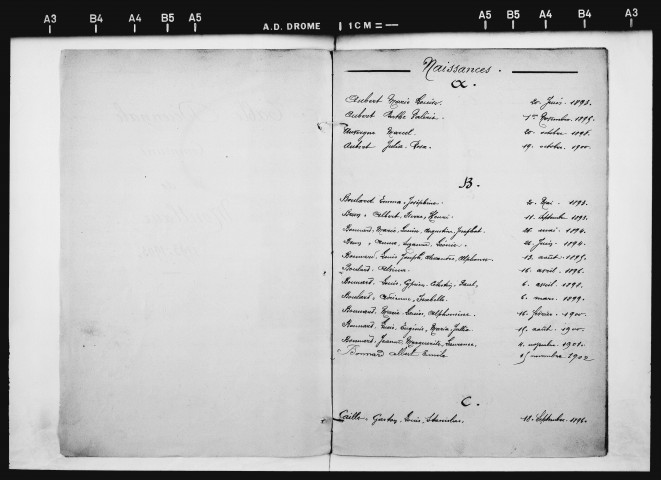 A3 B4 A4 B5 A5 A.D. DROME 1 CM = A5 B5 A4 B4 A3
Naissances.
A.
Aubert Marie Louise. 20 Juin 1893.
Aubert Valérie. 1er Novembre 1895.
Marcel. 20 octobre 1898.
Aubert Julia Rosa. 19 octobre 1900.
B.
Boulard Emma, Joséphine. 2. Mai 1893.
Albert, Henri. 11. Septembre 1893.
Bonnard, Marie, Louise, Augustine, 26 mai 1894.
Suzanne, Léonie. 24 Juin 1894.
Bonnard, Louis, Joseph, Alexandre, Alphonse. 12 août 1895.
Boulard. 16 avril 1896.
Bonnard. Louis, Cyprien, Célestin, Paul, 6 avril 1898.
Boulard, Adrienne, Isabelle. 6 mars 1899.
Bonnard. Marie, Louise, Alphonsine. 16 février 1900.
Bonnard. Eugénie, Maria, Julia. 15 août 1900.
Bonnard, Jeanne, Marguerite, Laurence. 4 novembre 1901.
Bonnard Albert Emile 15 novembre 1902
C.
Caille, Gaston, Louis, Stanislas. 18 Septembre 1896.